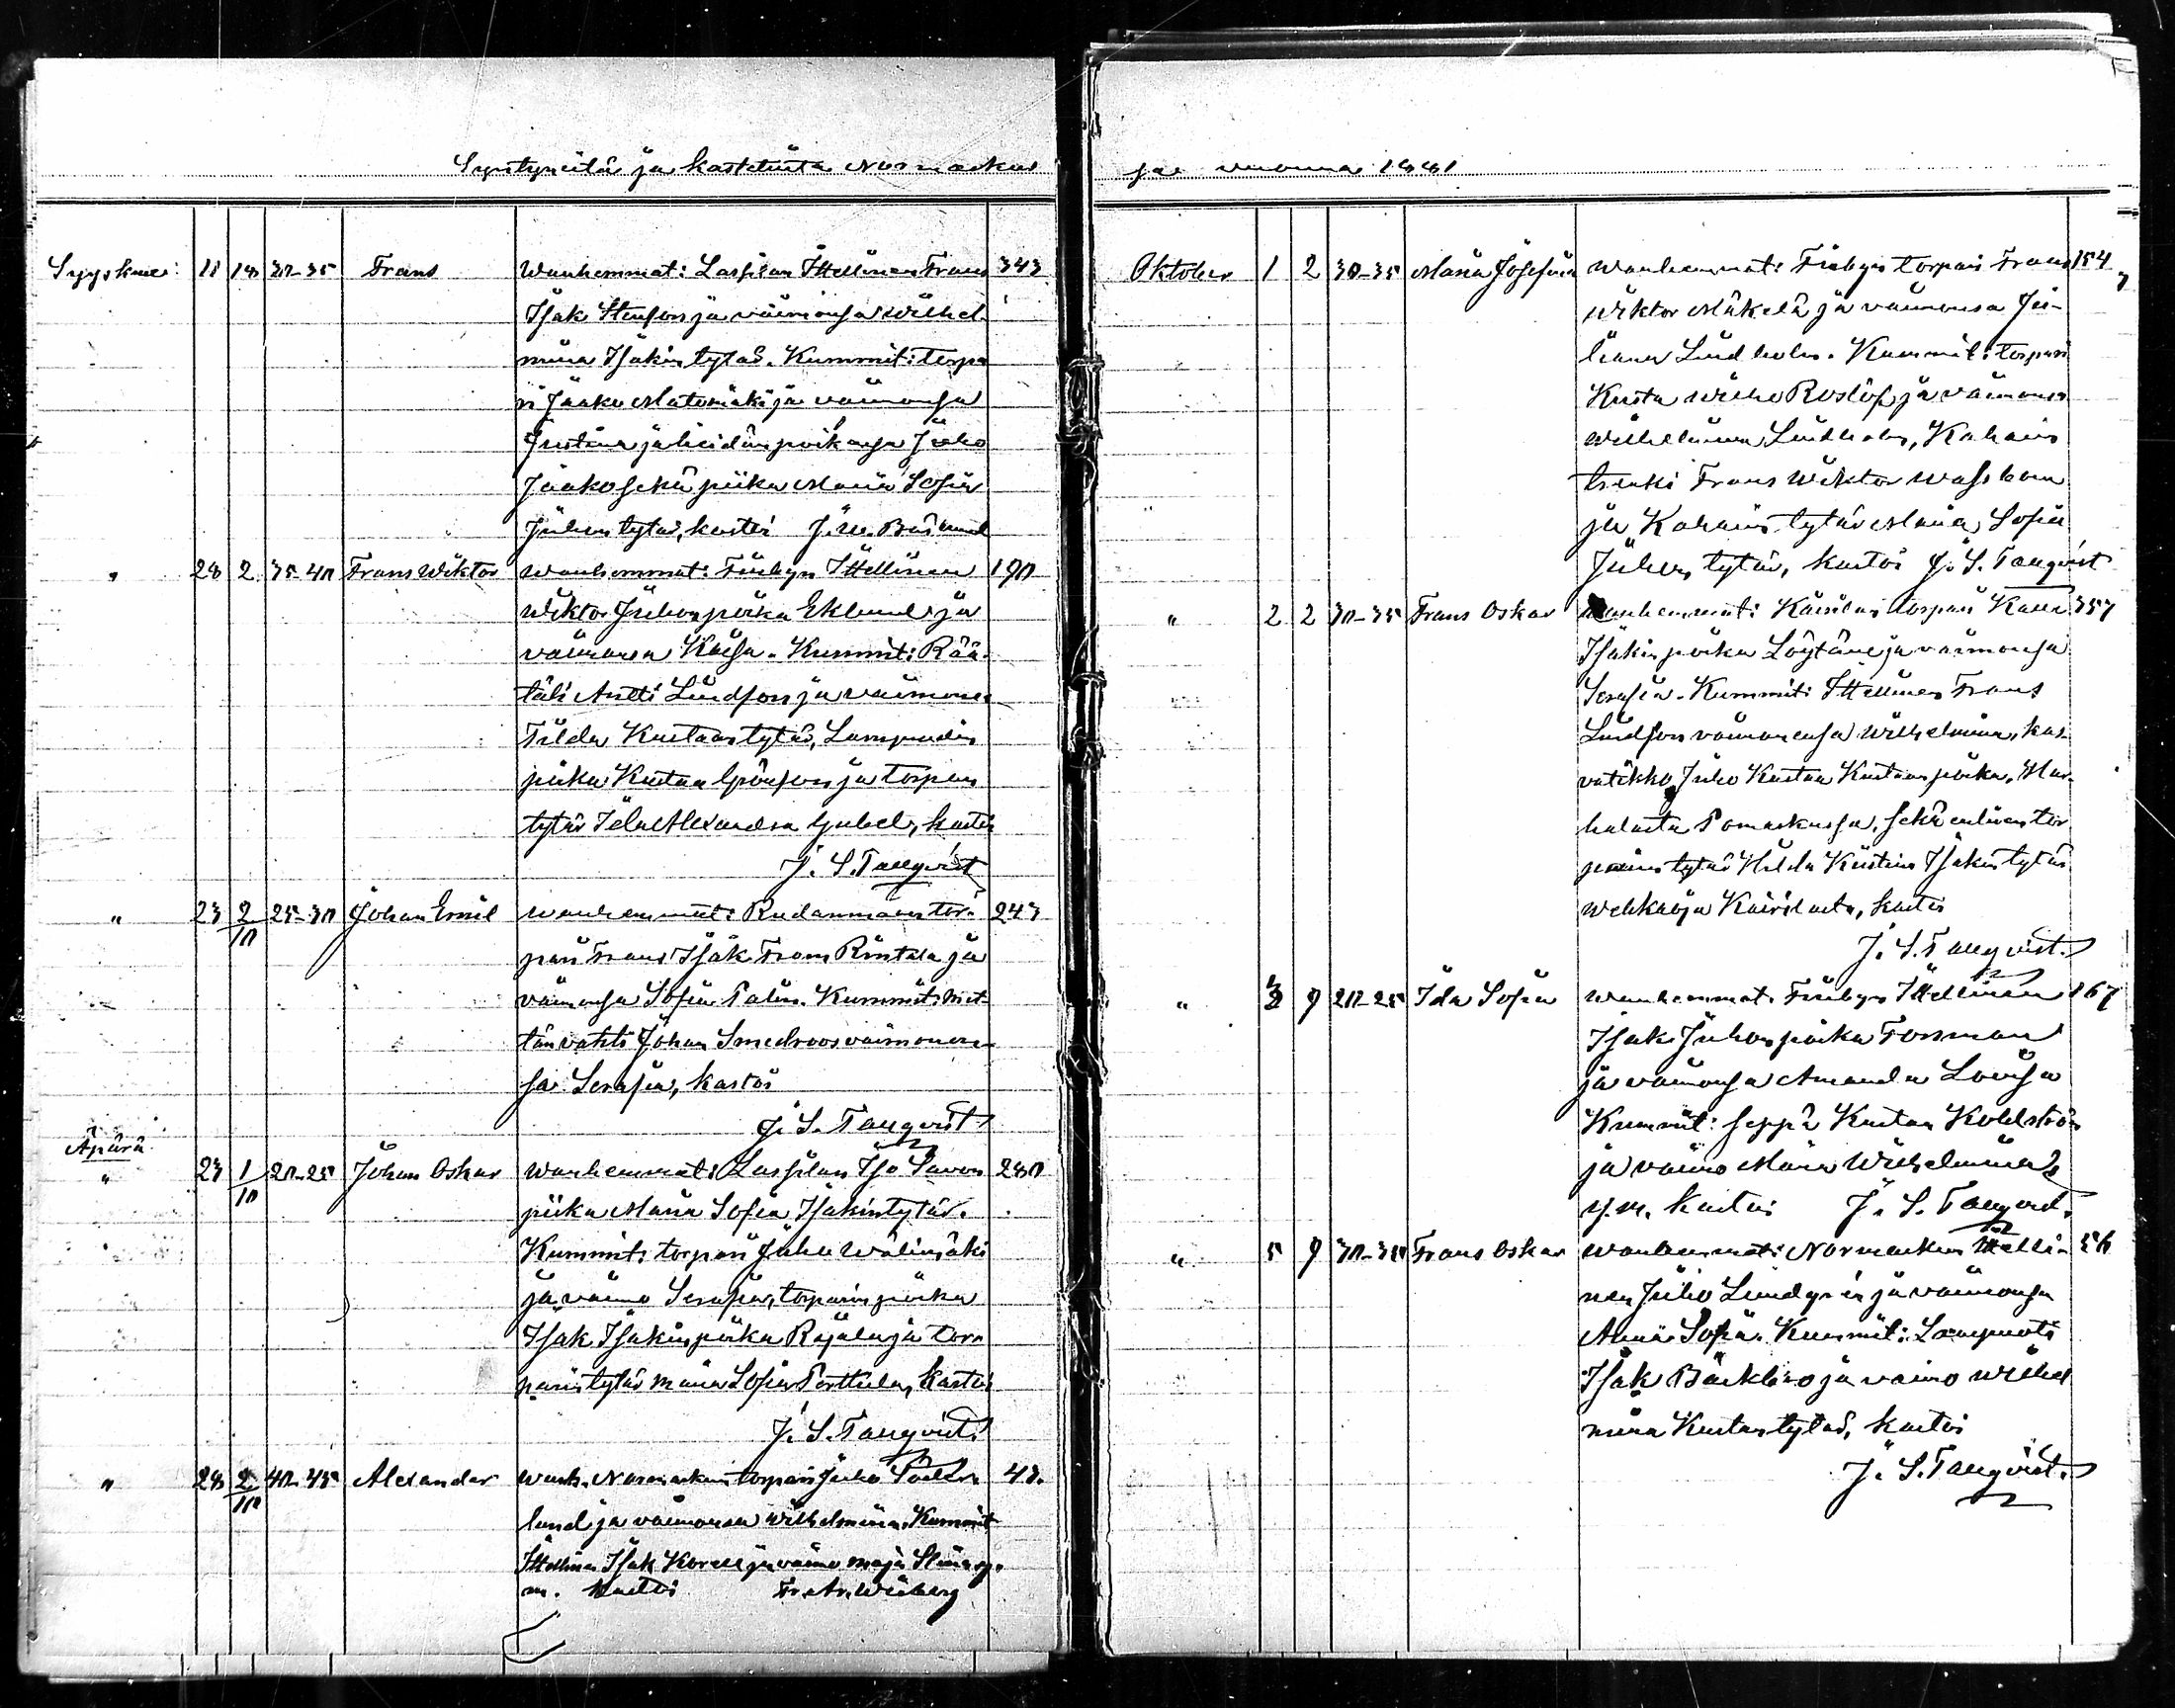 Syntyneitä ja kastetuita Normarkus
sa vuonna 1881
Syyskuu 11 18 30-35 Frans Wanhemmat: Lassilan Itellinen Frans 343
Isak Stenfors ja vaimonsa Wilhel-
mina Isakin tytär. Kummit: torpa
ri Jaako Matomäki ja vaimonsa
Justina ja heidän poikansa Juho
Jaako sekä piika Maria Sofia
Juhon tytär, kastoi J. W.
" 28 2 35-40 Frans Wiktor Wanhemmat: Finbyn Itellinen 190
Wiktor Juhonpoika Eklund ja
vaimonsa Kaisa. Kummit: Rää-
täli Antti Lindfors ja vaimonsa
Tilda Kustaan tytär, Lampuodin
poika Kustaa Grönfors ja torpan
tytär Ida Alexandra, kastoi
J. S. Tallqvist
" 23 2/10 25-30 Johan Emil Wanhemmat: Rudanmaan tor- 243
pari Frans Isak From Rintala ja
vaimonsa Sofia Palin. Kummit: met-
tän vahti Johan Smedroos vaimonen-
sa Serafia, kastoi
J. S. Tallqvist
Äpärä
" 23 1/10 20-25 Johan Oskar Wanhemmat: Lassilan Iso Savon 280
piika Maria Sofia Isakintytär.
Kummit: torpari Juha Wälimäki
ja vaimo Serafia, torparin poika
Isak Isakinpoika Rajala ja tor-
parin tytär Maria Sofia Perttula, kastoi
J. S. Tallqvist
" 28 2/10 40-45 Alexander Wanh. Normarkun torpari Juho Söder- 43.
lund ja vaimonsa Wilhelmina. Kummit
Itellinen Isak Koree ja vaimo Maja Stina y.
m. kastoi Fr. Ar. Wiberg
Oktober 1 2 30-35 Maria Josefina Wanhemmat: Finbyn torpari Frans 154
Wiktor Mäkelä ja vaimonsa Ju-
liana Lindholm. Kummit: torpari
Kusta Wilho Roslöf ja vaimonsa
Wilhelmina Lindholm, Kahais
trenki Frans Wiktor Wassbom
ja Kahais tytär Maria Sofia
Juhon tytär, kastoi J. S. Tallqvist
" 2 2 30-35 Frans Oskar Wanhemmat: Kairilan torpari Kalle 357
Isakin poika Löytäne ja vaimonsa
Serafia. Kummit: Itellinen Frans
Lindfors vaimonensa Wilhelmina, kas-
vatikko Juho Kustaa Kustaan poika, Har-
halasta Pomarkussa, sekä entinen tor
parin tytär Hilda Kristina Isakin tytär
Wehkaoja Kairilasta, kastoi
J. S. Tallqvist
" 3 9 20-25 Ida Sofia Wanhemmat: Finbyn Itellinen 167
Isak Juhonpoika Forsman
ja vaimonsa Amanda Lovisa
Kummit: seppä Kustaa Kohlström
ja vaimo Maria Wilhelmina
y. m. kastoi J. S. Tallqvist
" 5 9 30-35 Frans Oskar Wanhemmat: Normarkun Itelli- 56
nen Juho Lindgren ja vaimonsa
Anna Sofia. Kummit: Lampuoti
Isak Bäckbro ja vaimo Wilhel
mina Kustan tytär, kastoi
J. S. Tallqvist